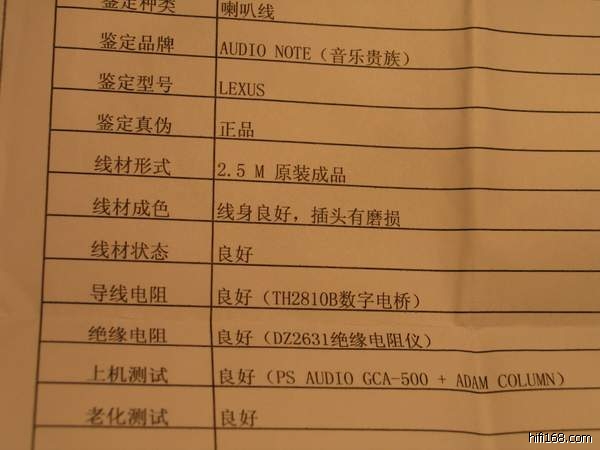 鉴定种类 喇叭线
鉴定品牌 AUDIO NOTE（音乐贵族）
鉴定型号 LEXUS
鉴定真伪 正品
线材形式 2.5 M 原装成品
线材成色 线身良好，插头有磨损
线材状态 良好
导线电阻 良好（TH2810B数字电桥）
绝缘电阻 良好（DZ2631绝缘电阻仪）
上机测试 良好（PS AUDIO GCA-500 + ADAM COLUMN）
老化测试 良好
hifi168.com